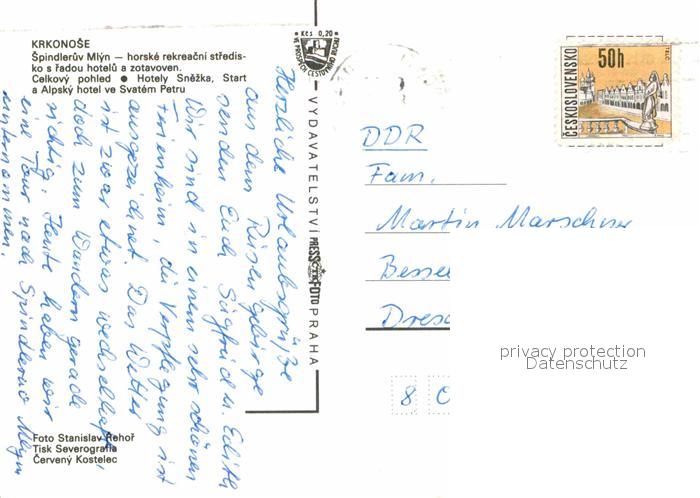 KRKONOŠE
Špindlerův Mlýn — horské rekreační středis-
ko s řadou hotelů a zotavoven.
Celkový pohled ● Hotely Sněžka, Start
a Alpský hotel ve Svatém Petru
Kčs 0,20
VE PROSPĚCH CESTOVNÍHO RUCHU
VYDAVATELSTVÍ PRESSFOTO PRAHA
ČESKOSLOVENSKO
50h
TELČ
Herzliche Urlaubsgrüße
aus dem Riesengebirge
senden Euch Siegfried u. Edith
Wir sind in einem sehr schönen
Ferienheim, die Verpflegung ist
ausgezeichnet. Das Wetter
ist zwar etwas wechselhaft,
doch zum Wandern gerade
richtig. Heute haben wir
eine Tour nach Spindleruv Mlyn
unternommen.
DDR
Fam.
Martin Marschner
Besse
Dresd
8 0
privacy protection
Datenschutz
Foto Stanislav Řehoř
Tisk Severografia
Červený Kostelec